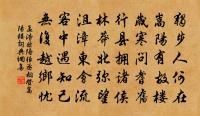 獨步人何在
嵩陽有故樓
歲寒問耆舊
行縣擁諸侯
林莽北弥望
沮漳東會流
客中遇知己
無復越鄉憂
孟浩然陪張丞相登嵩
陽樓